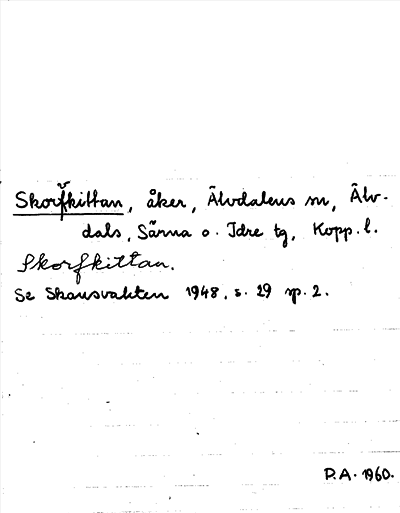 Skorfkittan, åker, Älvdalens sn, Älv-
dals, Särna o. Idre tg, Kopp. l.
Skorfkittan.
Se Skansvakten 1948, s. 29 sp. 2.
D.A. 1960.